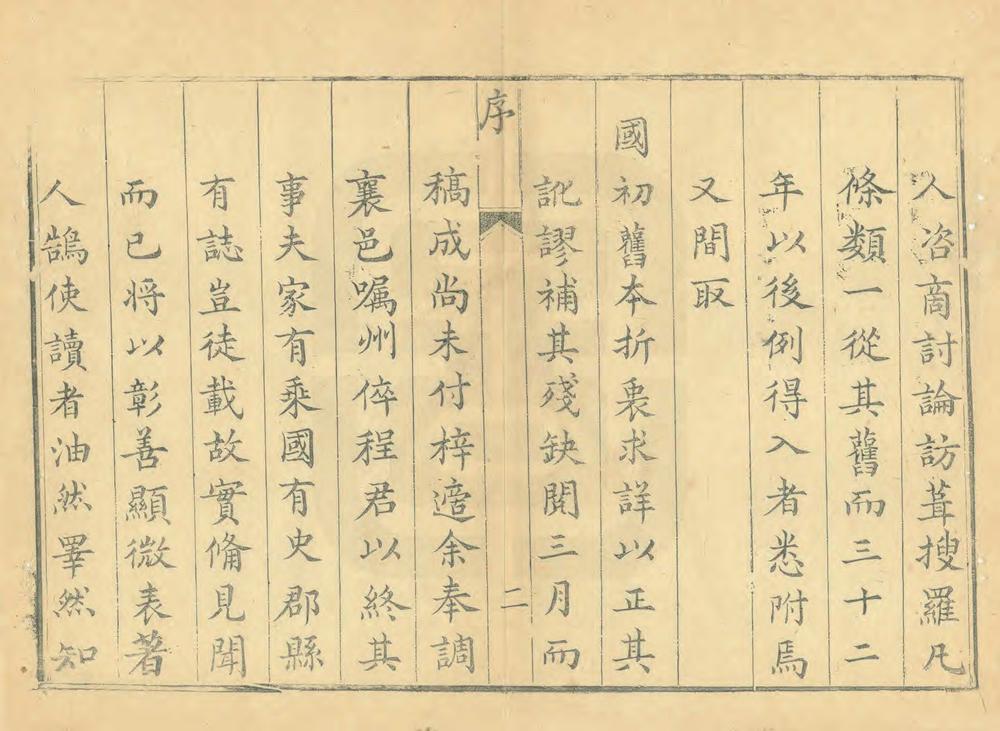 人咨啇討論訪葺搜羅凡
條類一從其舊而三十二
年以後例得入者悉附焉
又間取
國初舊本折衷求詳以正其
訛謬補其殘缺閱三月而
序
二
稿成尚未付梓適余奉調
襄邑嘱州倅程君以終其
事夫家有乘國有史郡縣
有誌豈徒載故實俻見聞
而已将以彰善顯微表著
人鵠使讀者油然睪然知